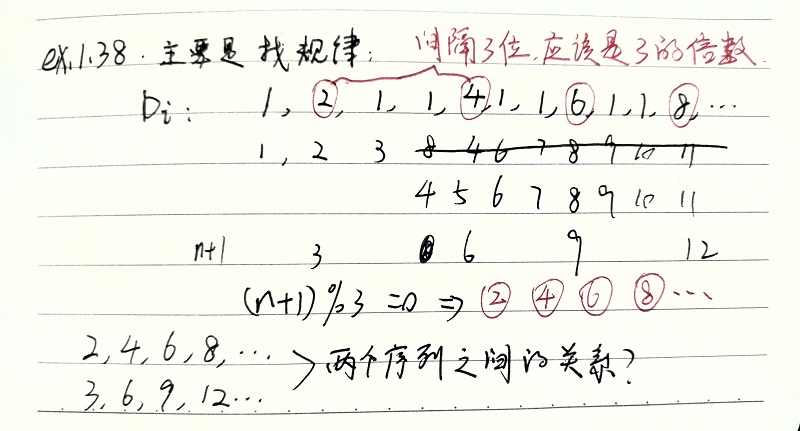 ex.1.38. 主要是找规律:
间隔3位,应该是3的倍数.
Di: 1, 2, 1, 1, 4, 1, 1, 6, 1, 1, 8, ...
1, 2 3 8 4 6 7 8 9 10 11
4 5 6 7 8 9 10 11
n+1 3 6 9 12
(n+1)%3=0 => ② ④ ⑥ ⑧ ...
2, 4, 6, 8, ...
3, 6, 9, 12 ...
> 两个序列之间的关系?